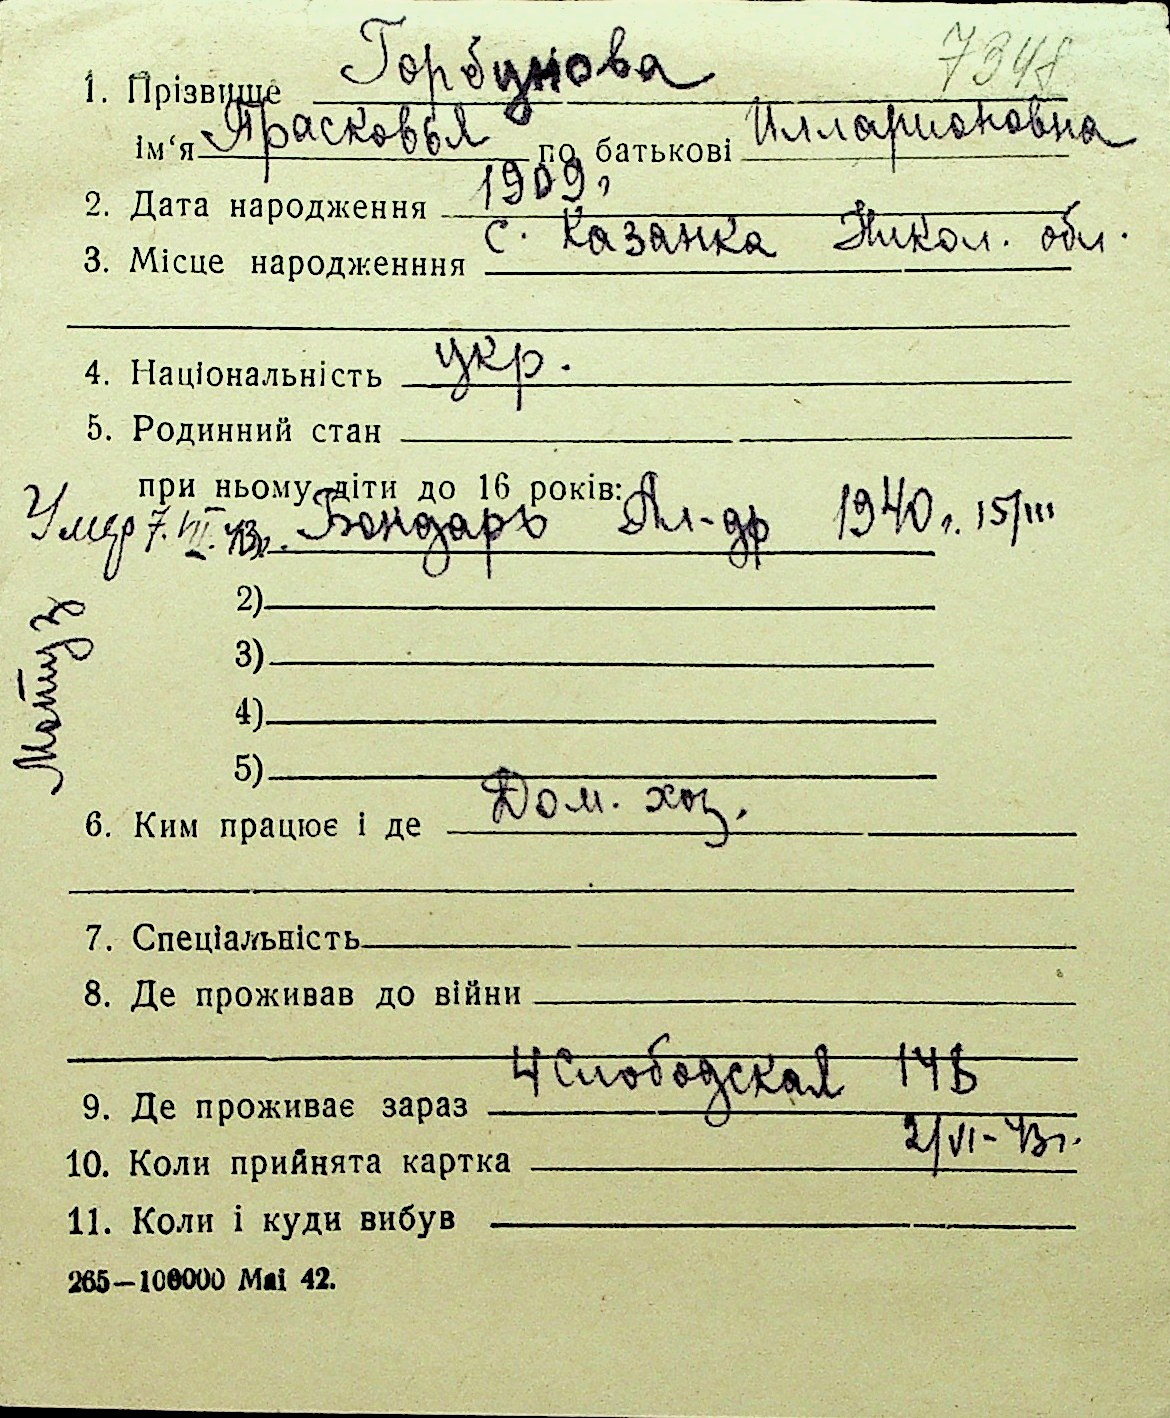 7348
1. Прізвище Горбунова
ім‘я Прасковья по батькові Илларионовна
2. Дата народження 1909 г.
3. Місце народженння с. Казанка Никол. обл.
4. Національність укр.
5. Родинний стан
при ньому діти до 16 років:
Умер 7.VIII.43г. Бондарь Ал-др 1940 г. 15/III
2)
3)
4)
5)
6. Ким працює і де Дом. хоз.
7. Спеціальність
8. Де проживав до війни
9. Де проживає зараз 4 Слободская 14 Б
10. Коли прийнята картка 2/VI-43г.
11. Коли і куди вибув
265—100000 Mai 42.